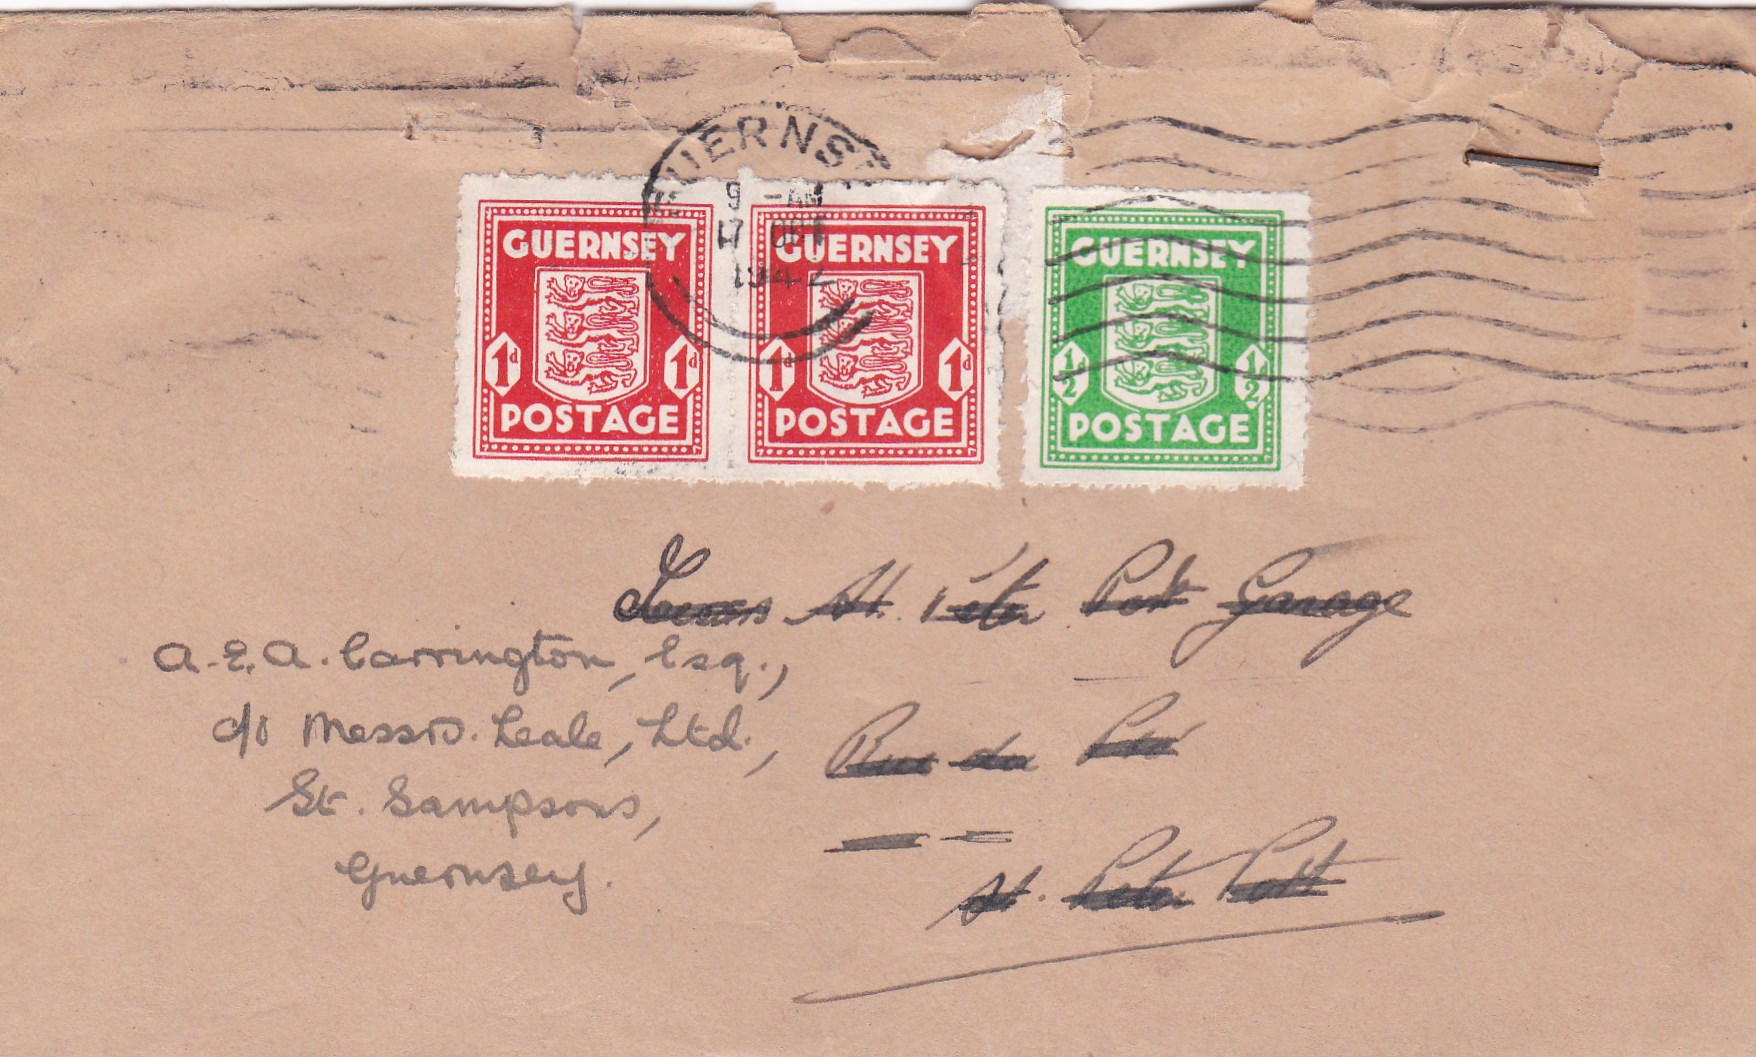 GUERNSEY
9 - AM
17 OCT
1942
GUERNSEY
1d 1d
POSTAGE
GUERNSEY
1d 1d
POSTAGE
GUERNSEY
1/2 1/2
POSTAGE
St. Peter Port Garage
A.E.A. Carrington, Esq.,
c/o Messrs. Leale, Ltd.,
St. Sampsons,
Guernsey.
Rue du Pré
St. Peter Port